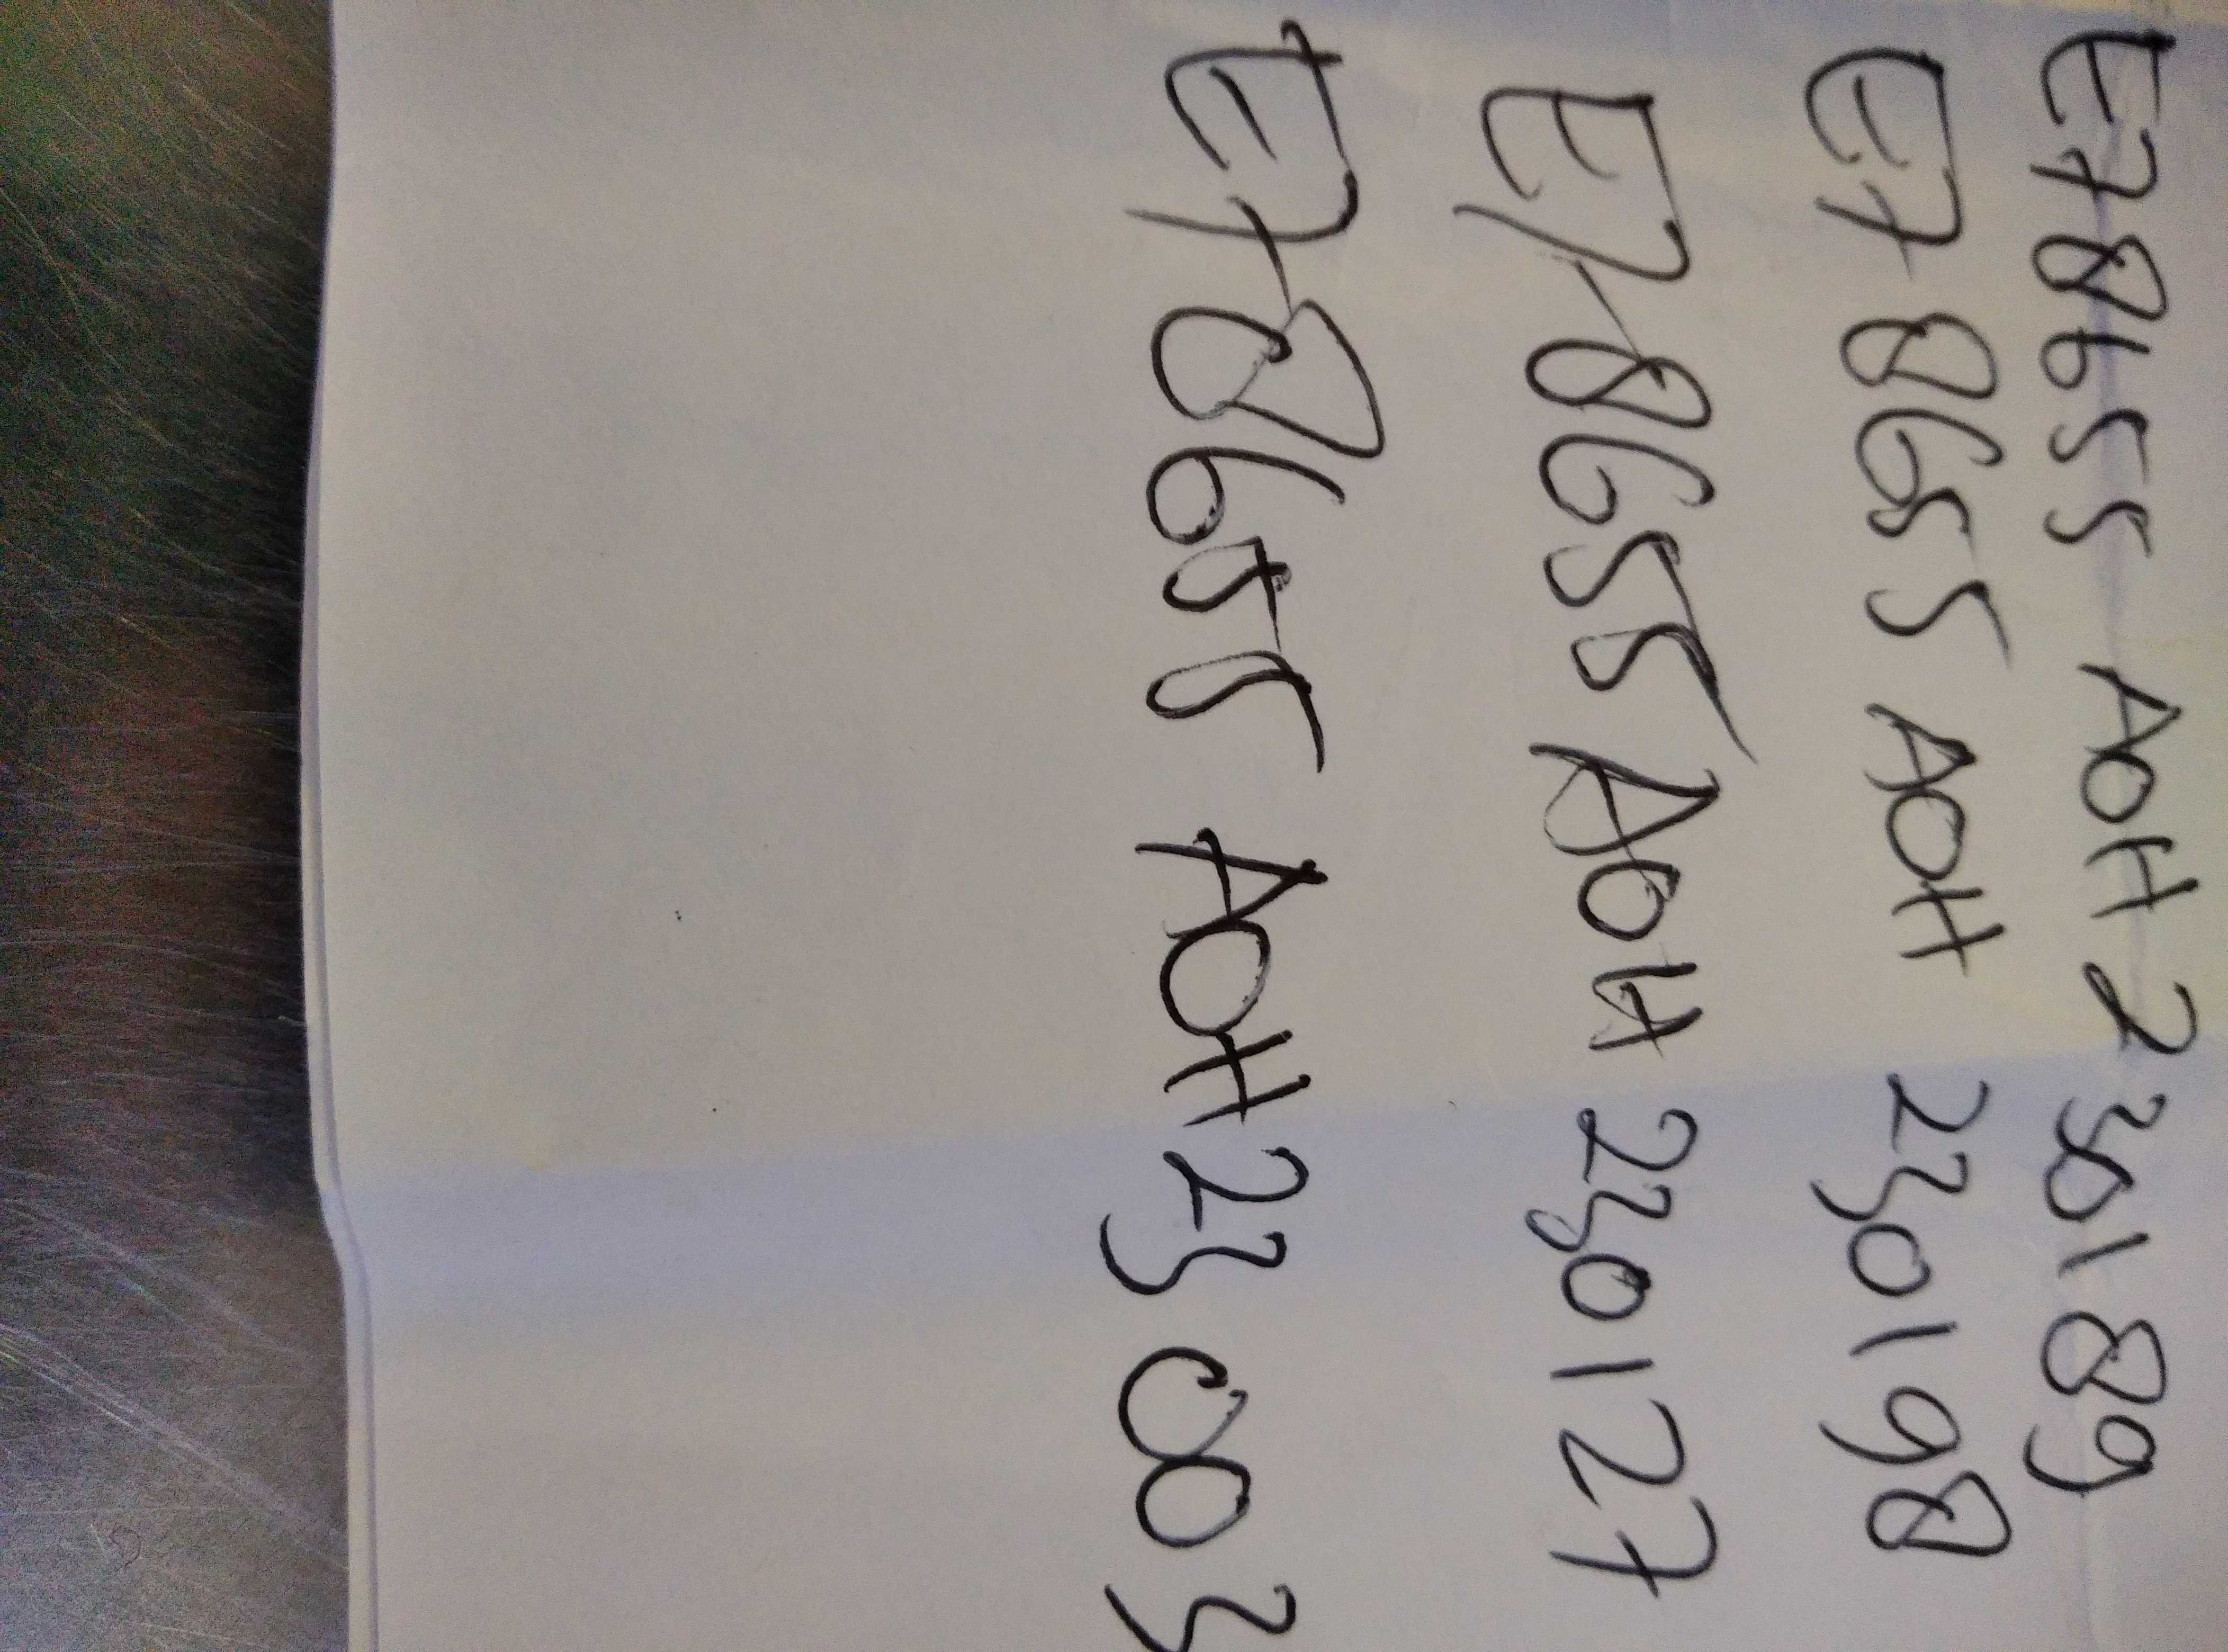 E78655 AOH 230189
E78655 AOH 230198
E78655 AOH 230127
E78655 AOH 23003